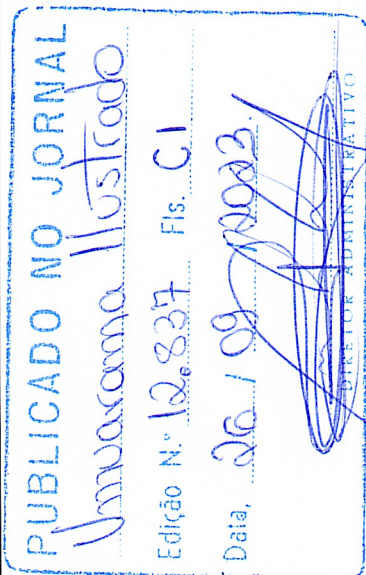 PUBLICADO NO JORNAL
Umuarama Ilustrado
Edição N.º 12.837 Fls. C1
Data, 26 / 09 / 2023
DIRETOR ADMINISTRATIVO